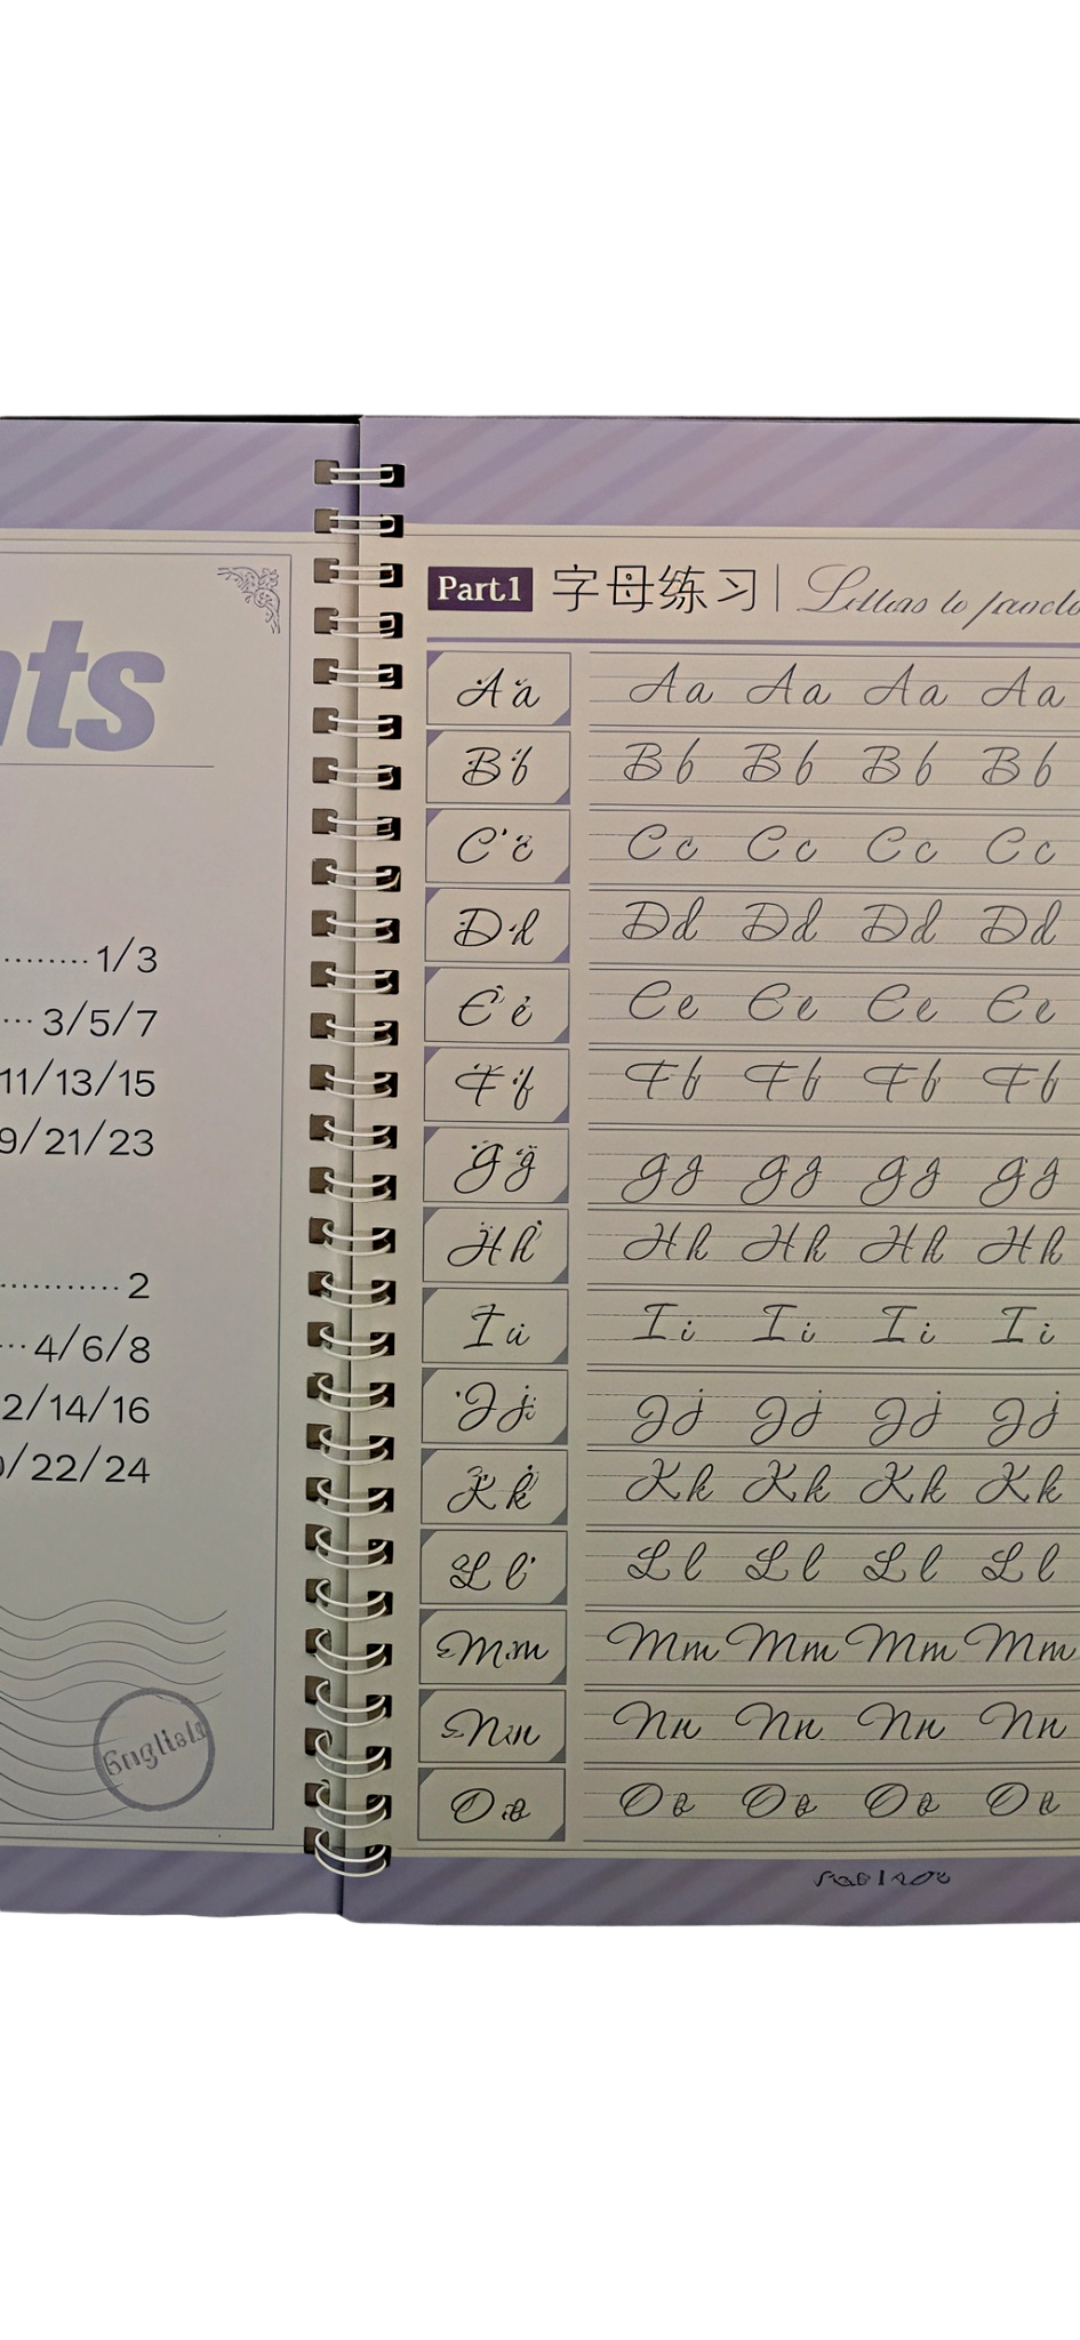 nts
1/3
3/5/7
11/13/15
9/21/23
2
4/6/8
2/14/16
/22/24
English
Part.1 字母练习 Letters to
Aa Aa Aa Aa Aa
Bb Bb Bb Bb Bb
Cc Cc Cc Cc Cc
Dd Dd Dd Dd Dd
Ee Ee Ee Ee Ee
Ff Ff Ff Ff Ff
Gg Gg Gg Gg Gg
Hh Hh Hh Hh Hh
Ii Ii Ii Ii Ii
Jj Jj Jj Jj Jj
Kk Kk Kk Kk Kk
Ll Ll Ll Ll Ll
Mm Mm Mm Mm Mm
Nn Nn Nn Nn Nn
Oo Oo Oo Oo Oo